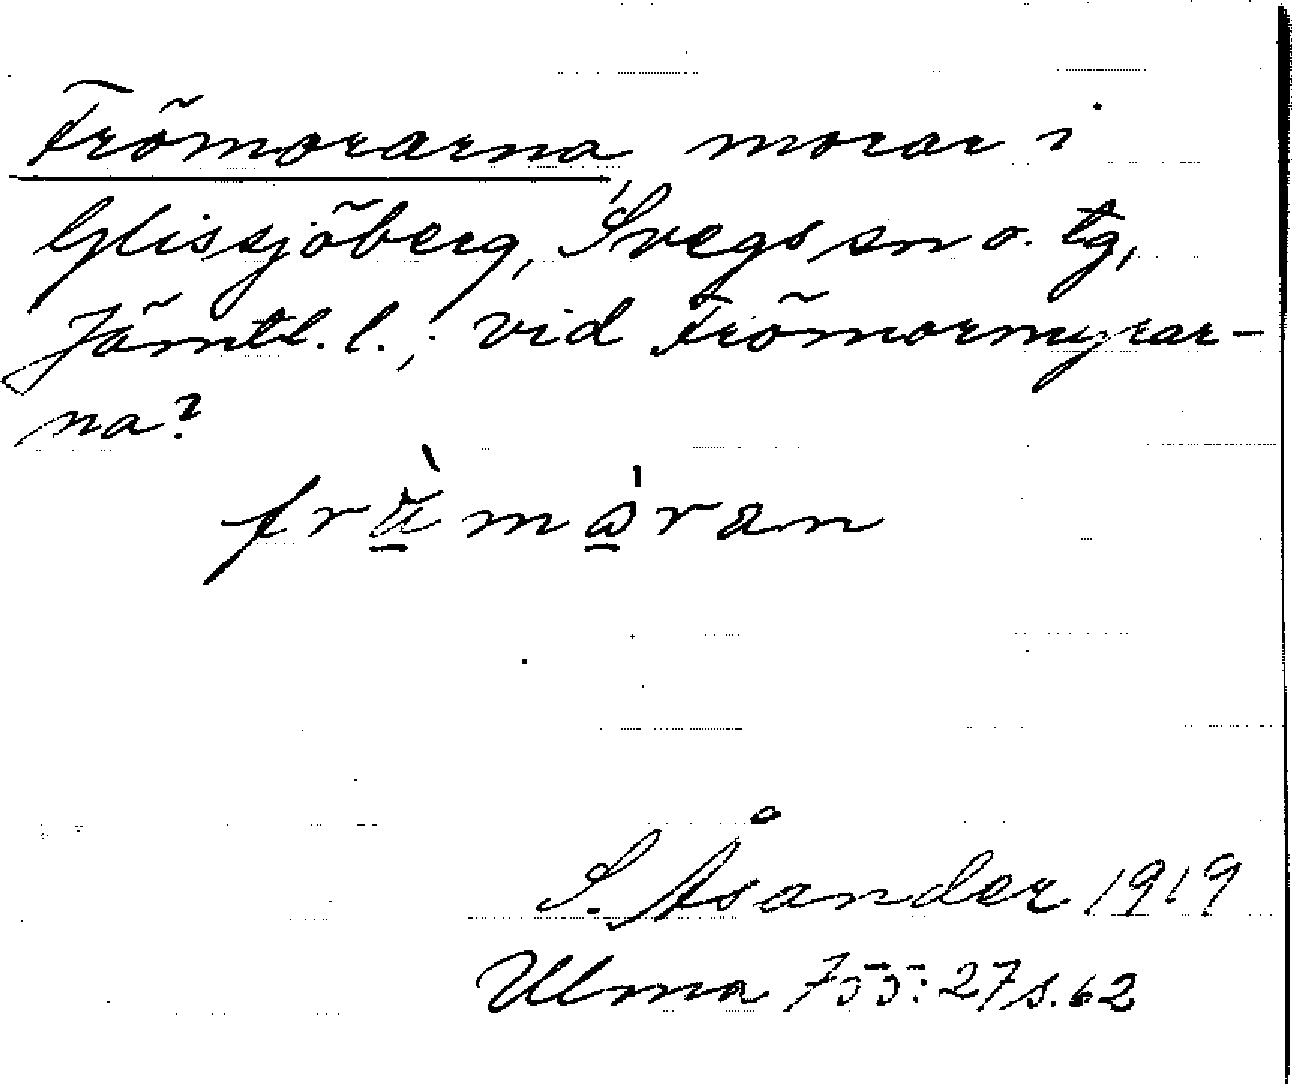 Frömorarna, morar i
Glissjöberg, Svegs sn o. tg,
Jämtl. l.; vid Frömormyrar-
na?
frä̀måran
S. Åsander 1919
Ulma 755:27 s. 62